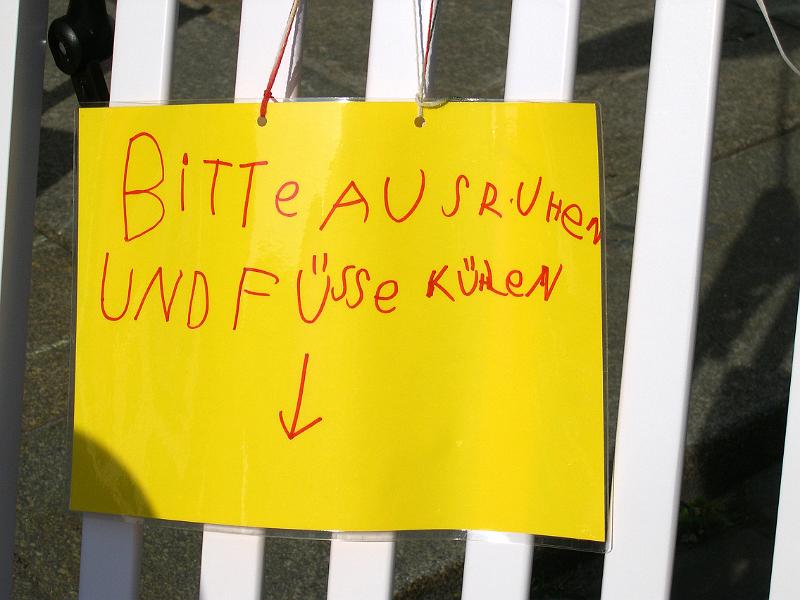 BiTTe AUSRUHeN
UND FÜSSe KÜHLeN